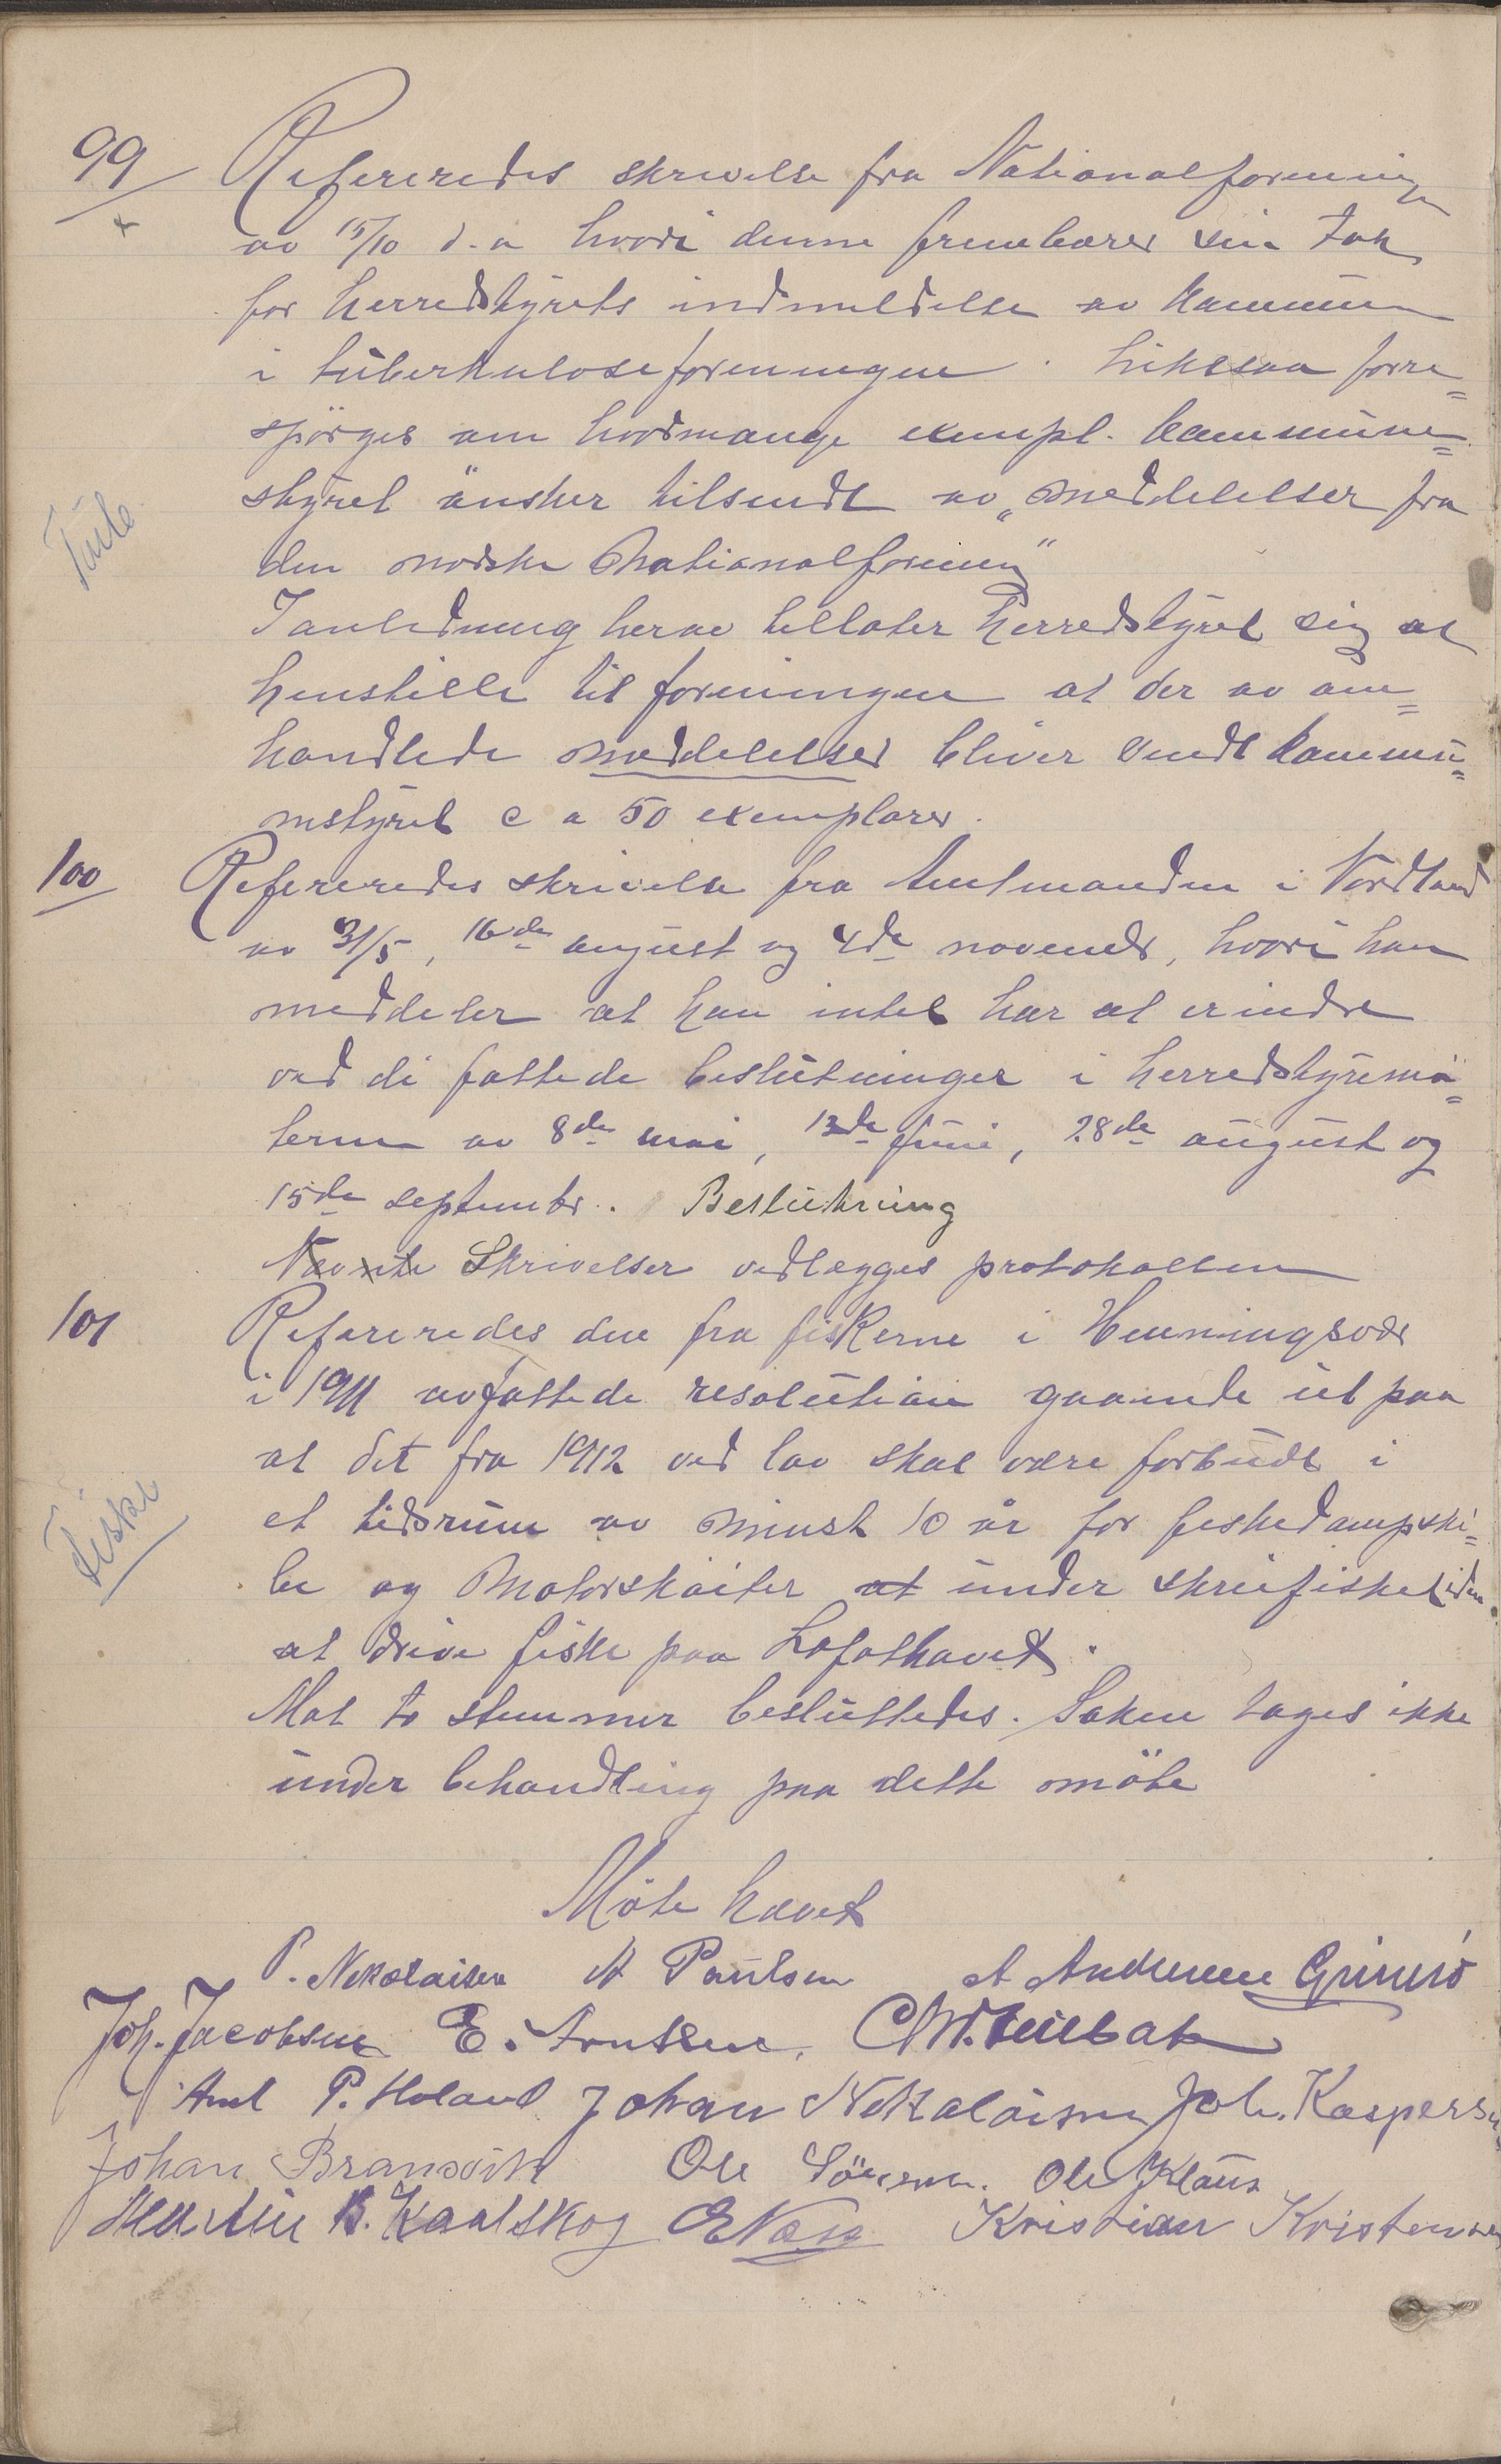 99 Refereredes skrivelse fra Nationalforening
av 15/10 d.a hvori denne frembærer sin tak
for herredstyrets indmeldelse av kommunen
i tuberkuloseforeningen. Likesaa forre=
spörges om hvormange exempl. kommune=
styret önsker tilsendt av „meddelelser fra
Tub.
den norske Nationalforening"
I anledning herav tillater Herredstyret sig at
henstille til foreningen at der av om=
handlede meddelelser bliver sendt kommu=
nestyret c a 50 exemplarer.
100 Refereredes skrivelse fra Amtmanden i Nordland
av 31/5, 16de august og 4de novembr, hvori han
meddeler at han intet har at erindre
ved de fattede beslutninger i herredstyremö=
terne av 8de mai, 13de juni, 28de august og
15de septembr. Beslutning
Nævnte Skrivelser vedlægges protokollen
101 Refereredes den fra fiskerne i Henningsvær
i 1911 avfattede resolution gaaende ut paa
at det fra 1912 ved lov skal være forbudt i
et tidsrum av minst 10 år for fiskedampski=
Fiske
be og Motorsköiter at under skreifisketiden
at drive fiske paa Lofothavet.
Mot to stemmer besluttedes. Saken tages ikke
under behandling paa dette möte
Möte hævet
P. Nikolaisen A Paulsen A Andersen Grimsö
Joh. Jacobsen E. Arntsen,
Aml P. Holand Johan Nikolaisen Joh. Kaspersen
Johan Bransvik Ole Sörensen. Ole Klaus
Martin B. Kaalskog E Næss Kristian Kristensen